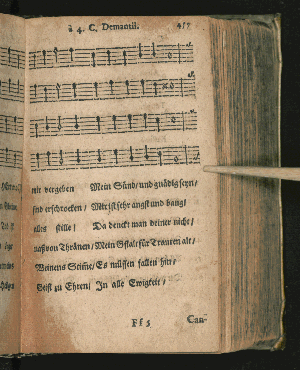 à 4. C. Demantii. 457
mir vergeben Mein Sünd/und gnädig seyn/
sind erschrocken/ Mir ist sehr angst und bang/
alles stille/ Da denckt man deiner nicht/
naß von Thränen/Mein Gstalt für Trauren alt/
Weinens Stim̃e/Es müssen fallen hin/
Geist zu Ehren/ In alle Ewigkeit/
F f 5 Can-